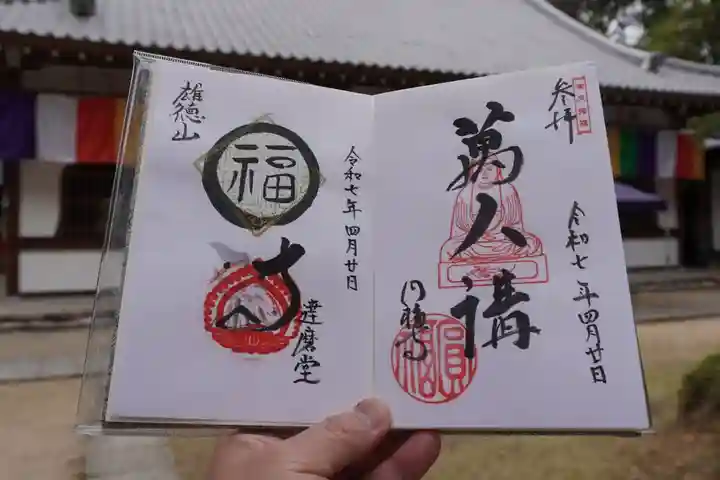 参拝
萬人講
令和七年四月廿日
円福寺
圓福
雄徳山
福
令和七年四月廿日
達磨堂